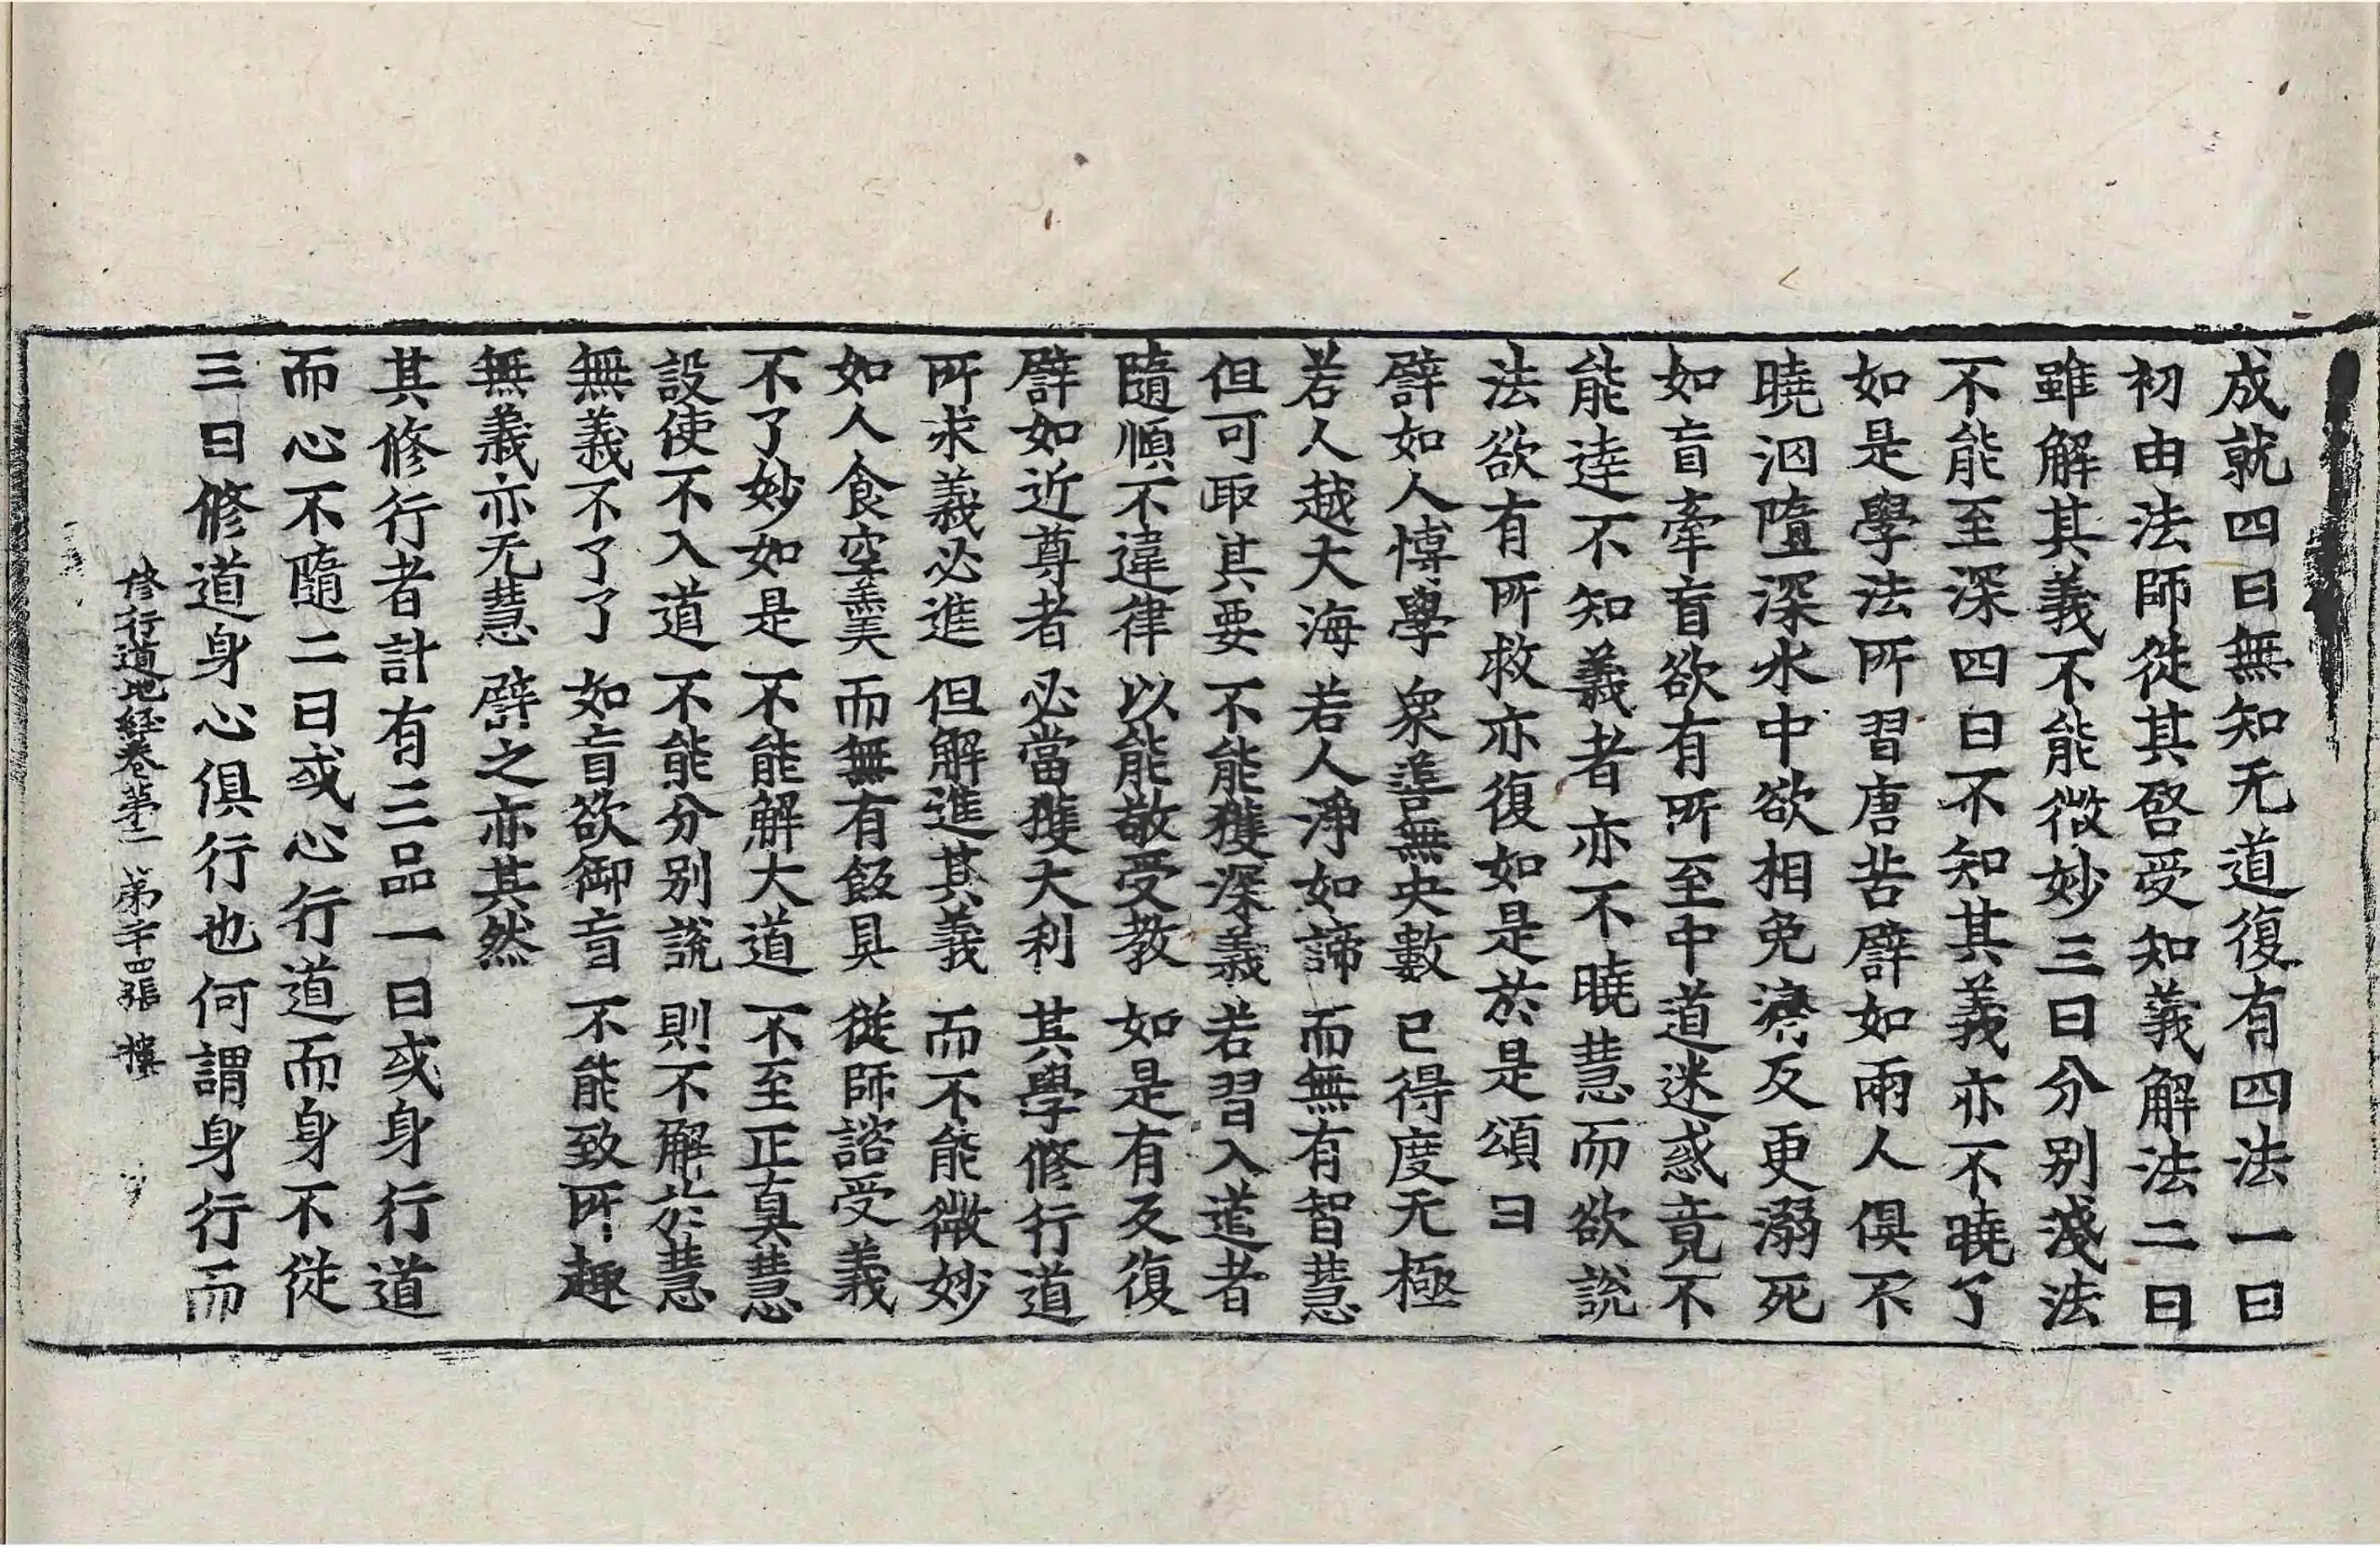 成就四曰無知无道復有四法一曰
初由法師從其啓受知義解法二曰
雖解其義不能微妙三曰分別淺法
不能至深四曰不知其義亦不曉了
如是學法所習唐苦譬如兩人俱不
曉泅墮深水中欲相免濟反更溺死
如盲牽盲欲有所至中道迷惑竟不
能逹不知義者亦不曉慧而欲說
法欲有所救亦復如是於是頌曰
譬如人博學 衆善無央數 已得度无極
若人越大海 若人淨如諦 而無有智慧
但可取其要 不能獲深義 若習入道者
隨順不違律 以能敬受教 如是有反復
譬如近尊者 必當獲大利 其學修行道
所求義必進 但解進其義 而不能微妙
如人食空羹 而無有飯具 從師諮受義
不了妙如是 不能解大道 不至正真慧
設使不入道 不能分別說 則不解於慧
無義不了了 如盲欲御盲 不能致所趣
無義亦无慧 譬之亦其然
其修行者計有三品一曰或身行道
而心不隨二曰或心行道而身不從
三曰修道身心俱行也何謂身行而
修行道地経卷第二 第二十四張